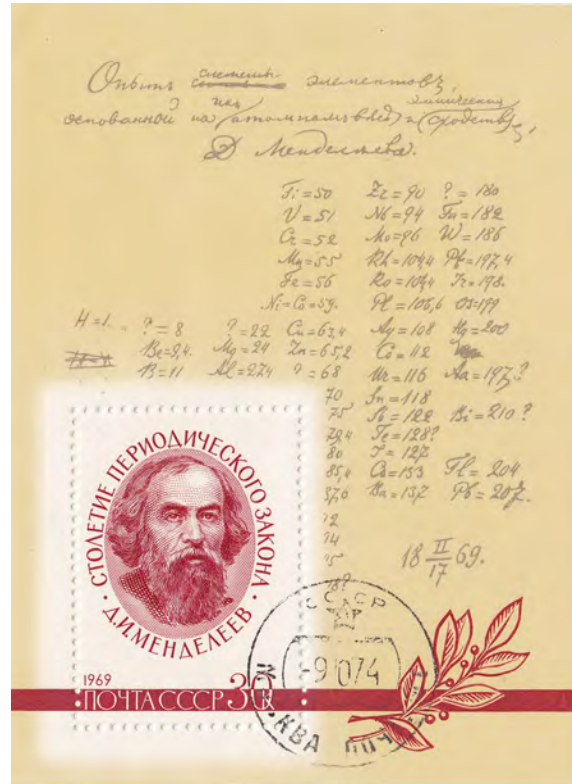 Опытъ системы элементовъ,
основанной на ихъ атомномъ вѣсѣ и химическомъ сходствѣ,
Д Менделѣева.
Ti=50 Zr=90 ?=180
V=51 Nb=94 Ta=182
Cr=52 Mo=96 W=186
Mn=55 Rh=104,4 Pt=197,4
Fe=56 Ro=104,4 Ir=198.
Ni=Co=59. Pl=106,6 Os=199
H=1. ?=8 ?=22 Cu=63,4 Ag=108 Hg=200
Be=9,4. Mg=24 Zn=65,2 Cd=112
B=11 Al=27,4 ?=68 Ur=116 Au=197?
70 Sn=118
75 Sb=122 Bi=210?
79,4 Te=128?
80 J=127
85,4 Cs=133 Tl=204
87,6 Ba=137 Pb=207.
92
94
95
18 II/17 69.
СТОЛЕТИЕ ПЕРИОДИЧЕСКОГО ЗАКОНА
· Д.И.МЕНДЕЛЕЕВ ·
1969
ПОЧТА СССР 30
СССР
-9 10 74
МОСКВА